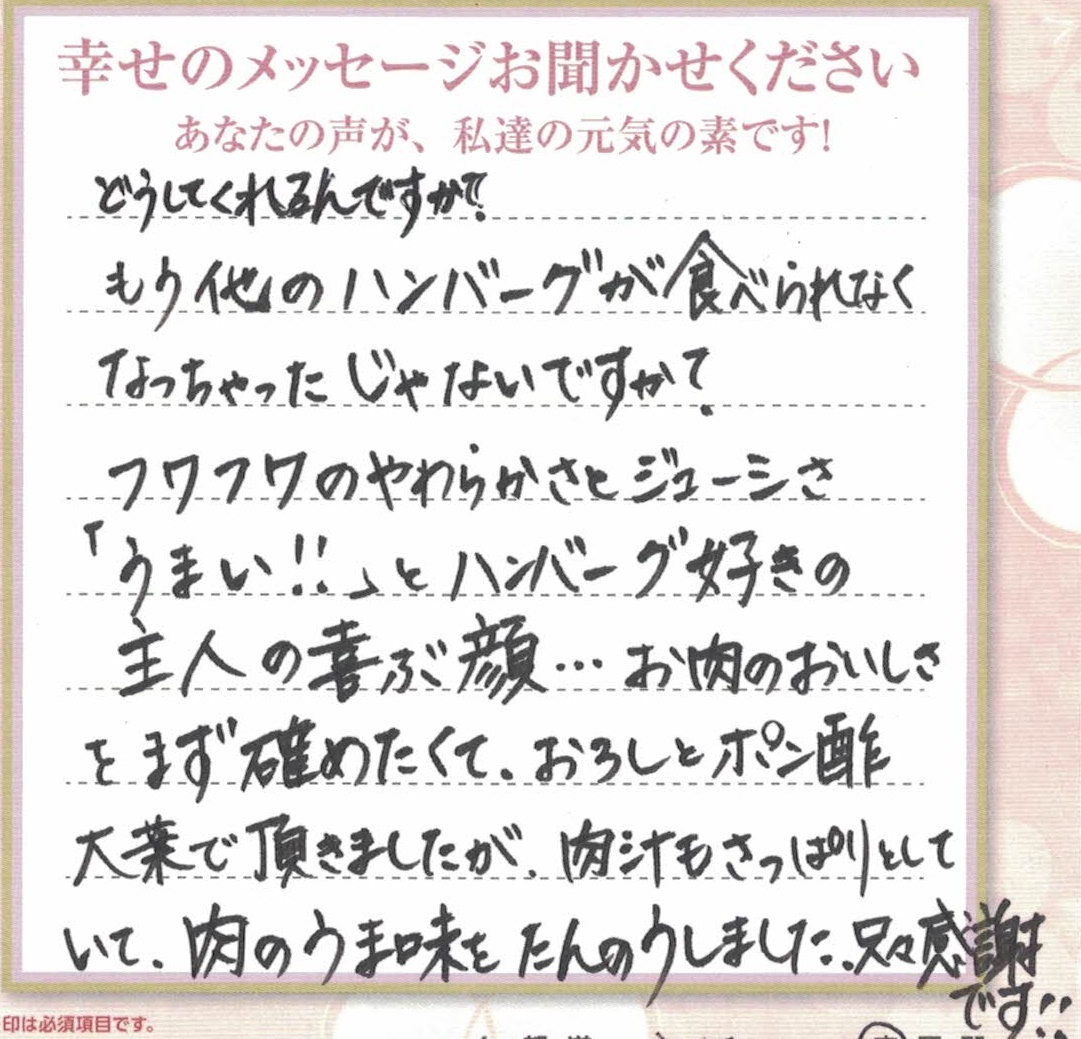 幸せのメッセージお聞かせください
あなたの声が、私達の元気の素です!
どうしてくれるんですか?
もう他のハンバーグが食べられなく
なっちゃったじゃないですか?
フワフワのやわらかさとジューシさ
「うまい!!」とハンバーグ好きの
主人の喜ぶ顔…お肉のおいしさ
をまず確めたくて、おろしとポン酢
大葉で頂きましたが、肉汁もさっぱりとして
いて、肉のうま味をたんのうしました。只々感謝
です!!
印は必須項目です。